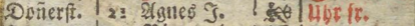 Doñerſt. 21 Agnes J. Uhr fr.